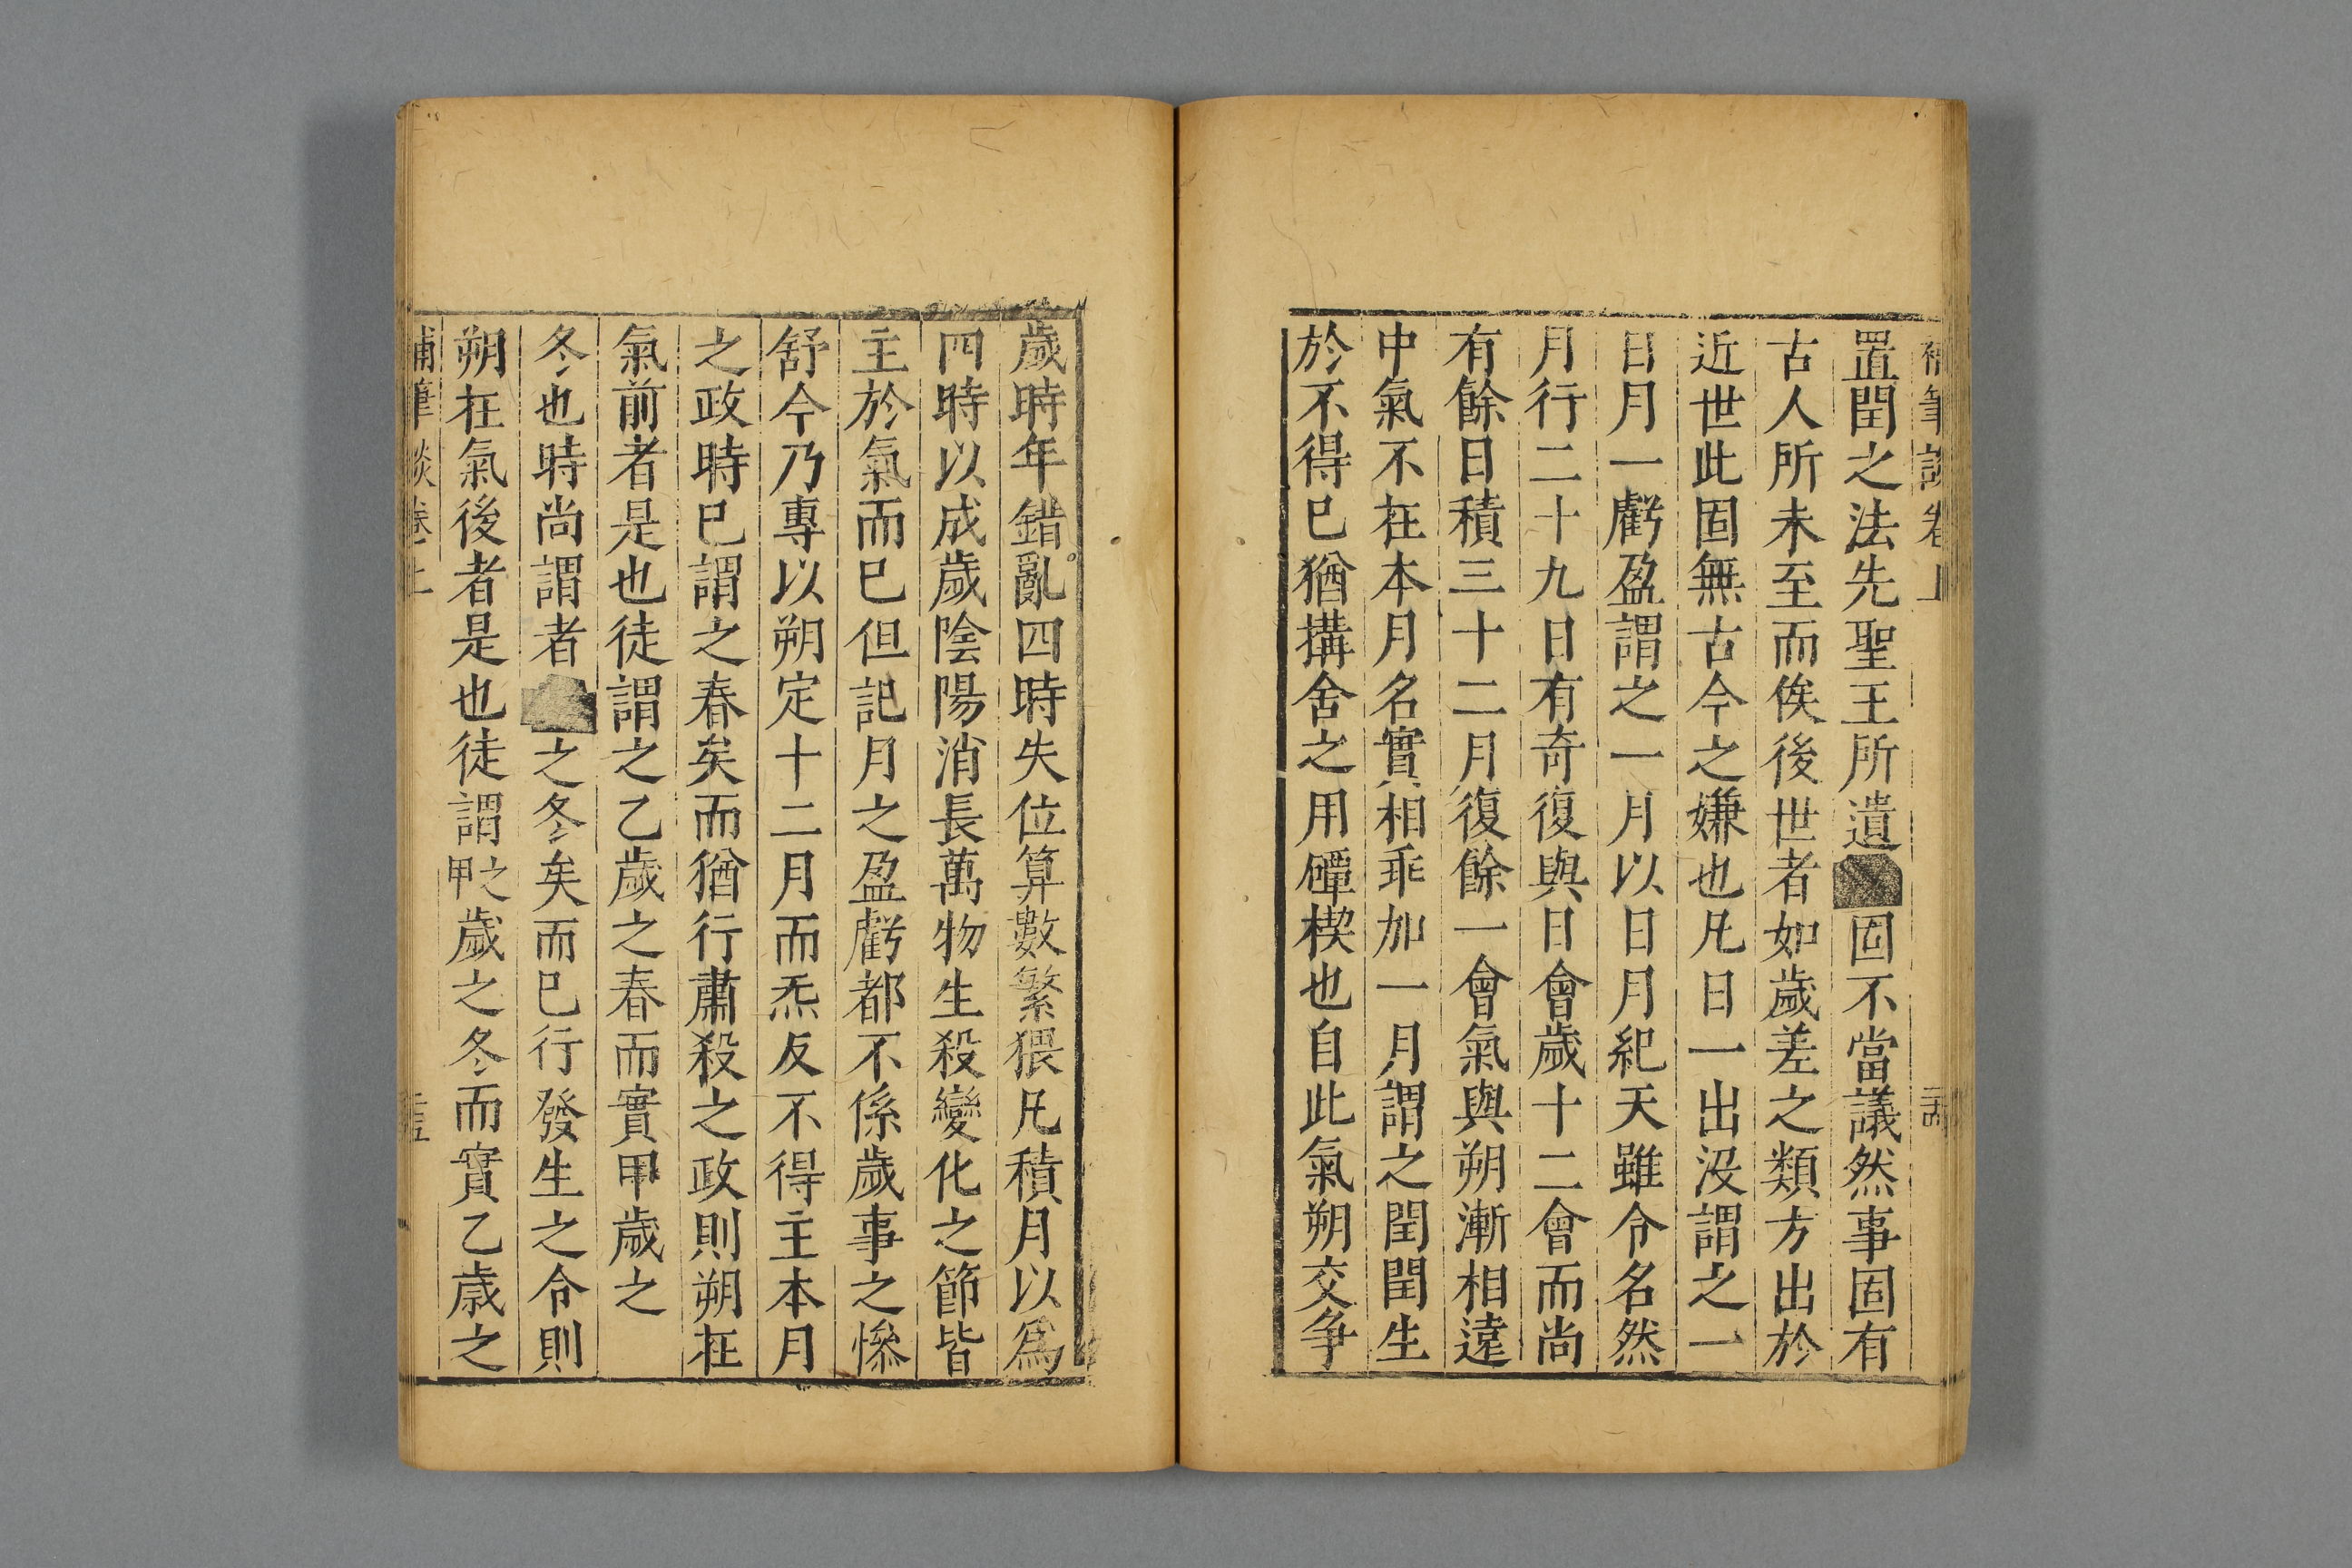 補筆談卷上
二十四
置閏之法先聖王所遺固不當議然事固有
古人所未至而俟後世者如歲差之類方出於
近世此固無古今之嫌也凡日一出没謂之一
日月一虧盈謂之一月以日月紀天雖令名然
月行二十九日有奇復與日會歲十二會而尚
有餘日積三十二月復餘一會氣與朔漸相遠
中氣不在本月名實相乖加一月謂之閏閏生
於不得已猶搆舍之用磹楔也自此氣朔交争
歲時年錯亂四時失位算數繁猥凡積月以爲
四時以成歲陰陽消長萬物生殺變化之節皆
主於氣而已但記月之盈虧都不係歲事之慘
舒今乃專以朔定十二月而炁反不得主本月
之政時已謂之春矣而猶行肅殺之政則朔在
氣前者是也徒謂之乙歲之春而實甲歲之
冬也時尚謂者之冬矣而已行發生之令則
朔在氣後者是也徒謂之甲歲之冬而實乙歲之
補筆談卷上
二十五